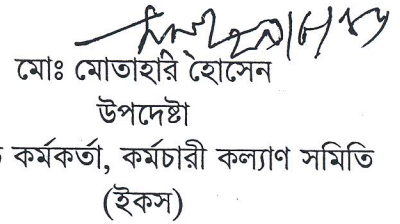 মোঃ মোতাহার হোসেন
উপদেষ্টা
কর্মকর্তা, কর্মচারী কল্যাণ সমিতি
(ইকস)